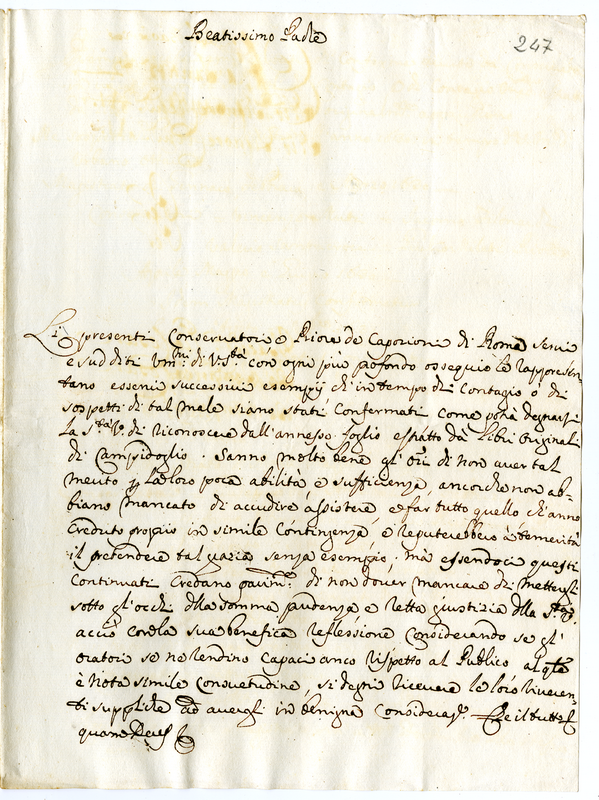 Beatissimo Padre
247
Li presenti Conservatori e Priore de Caporioni di Roma servi
e sudditi um:mi di V. S.tà con ogni più profondo ossequio le rappresen-
tano esservi successivi esempij ch'in tempo di Contagio o di
sospetti di tal male siano stati Confermati come potrà degnarsi
la S.tà V.ra di riconoscere dall'annesso foglio estratto dà Libri Originali
di Campidoglio. Sanno molto bene gl'Ori di non aver tal
merito p la loro poca abilità e sufficienza, ancorche non ab-
biano mancato di accudire, assistere, e far tutto quello ch'anno
Creduto proprio in simile Contingenza, e reputerebbero à temerità
il pretendere tal grazia senza esempio, mà essendoci questi
Continuati Credano di non dover mancare di mettergli
sotto gl'occhi dlla somma prudenza, e retta giustizia dlla S.tà V.
acciò con la sua benefica reflessione Considerando se gl'
Oratori se ne rendino Capaci anco rispetto al Publico al qle
è nota simile Consuetudine, si degni ricevere le loro riveren-
ti suppliche ad avergli in benigna Consideraz.e Che il tutto
quam Deus